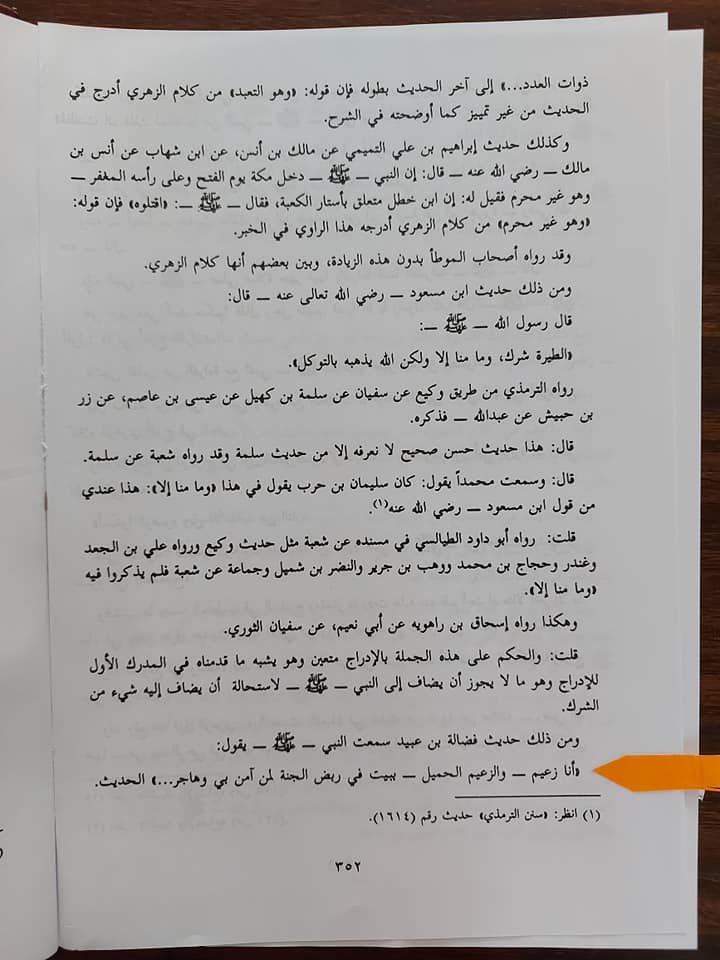 ذوات العدد...» إلى آخر الحديث بطوله فإن قوله: «وهو التعبد» من كلام الزهري أدرج في
الحديث من غير تمييز كما أوضحته في الشرح.
وكذلك حديث إبراهيم بن علي التميمي عن مالك بن أنس، عن ابن شهاب عن أنس بن
مالك — رضي الله عنه — قال: إن النبي — ﷺ — دخل مكة يوم الفتح وعلى رأسه المغفر —
وهو غير محرم فقيل له: إن ابن خطل متعلق بأستار الكعبة، فقال — ﷺ —: «اقتلوه» فإن قوله:
«وهو غير محرم» من كلام الزهري أدرجه هذا الراوي في الخبر.
وقد رواه أصحاب الموطأ بدون هذه الزيادة، وبين بعضهم أنها كلام الزهري.
ومن ذلك حديث ابن مسعود — رضي الله تعالى عنه — قال:
قال رسول الله — ﷺ —:
«الطيرة شرك، وما منا إلا ولكن الله يذهبه بالتوكل».
رواه الترمذي من طريق وكيع عن سفيان عن سلمة بن كهيل عن عيسى بن عاصم، عن زر
بن حبيش عن عبدالله — فذكره.
قال: هذا حديث حسن صحيح لا نعرفه إلا من حديث سلمة وقد رواه شعبة عن سلمة.
قال: وسمعت محمداً يقول: كان سليمان بن حرب يقول في هذا «وما منا إلا»: هذا عندي
من قول ابن مسعود — رضي الله عنه(١).
قلت: رواه أبو داود الطيالسي في مسنده عن شعبة مثل حديث وكيع ورواه علي بن الجعد
وغندر وحجاج بن محمد ووهب بن جرير والنضر بن شميل وجماعة عن شعبة فلم يذكروا فيه
«وما منا إلا».
وهكذا رواه إسحاق بن راهويه عن أبي نعيم، عن سفيان الثوري.
قلت: والحكم على هذه الجملة بالإدراج متعين وهو يشبه ما قدمناه في المدرك الأول
للإدراج وهو ما لا يجوز أن يضاف إلى النبي — ﷺ — لاستحالة أن يضاف إليه شيء من
الشرك.
ومن ذلك حديث فضالة بن عبيد سمعت النبي — ﷺ — يقول:
«أنا زعيم — والزعيم الحميل — ببيت في ربض الجنة لمن آمن بي وهاجر...» الحديث.
(١) انظر: «سنن الترمذي» حديث رقم (١٦١٤).
٣٥٢